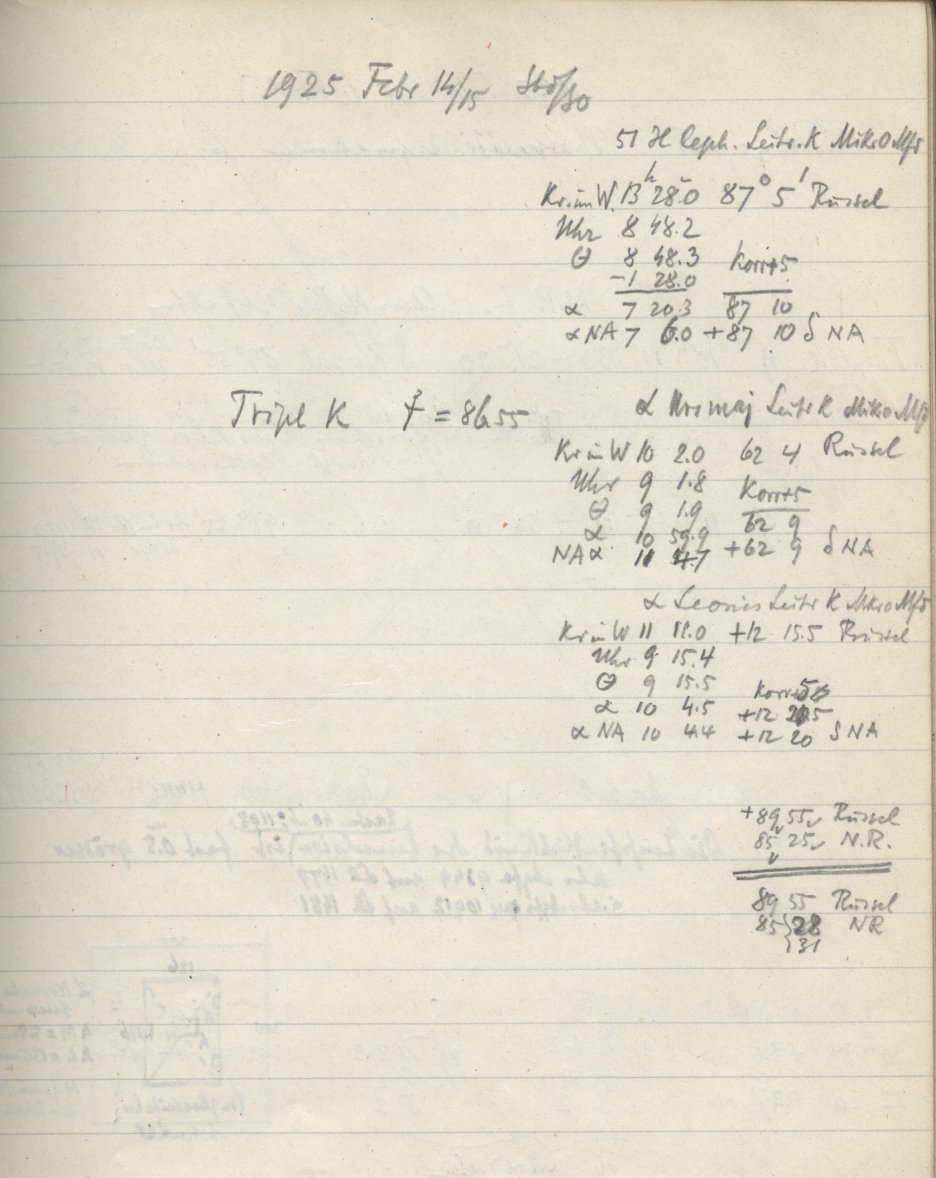 1925 Febr 14/15
51 H Ceph. Leitr. K Mikr O Mf5
Kr. im W. 13ʰ 28.0 87° 5' Rüssel
Uhr 8 48.2
Θ 8 48.3 Korr +5
-1 28.0
α 7 20.3 87 10
α NA 7 6.0 +87 10 δ NA
Tripl K = 8655
α Urs maj Leitr K Mikro Mf5
Kr im W 10 2.0 62 4 Rüssel
Uhr 9 1.8 Korr +5
Θ 9 1.9 62 9
α 10 59.9
NA α 11 +62 9 δ NA
α Leonis Leitr K Mikro Mf5
Kr im W 11 11.0 +12 15.5 Rüssel
Uhr 9 15.4
Θ 9 15.5 Korr
α 10 4.5 +12
α NA 10 4.4 +12 20 δ NA
+89 55 Rüssel
85 25 N.R.
89 55 Rüssel
85 28 NR
31